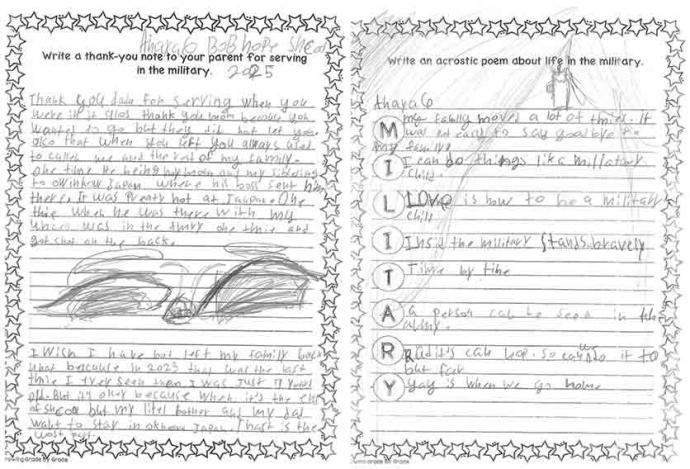 Write a thank-you note to your parent for serving
in the military. 2025
Thank you dada for serving when you
were in it also thank you mom because you
wanted to go but they did not let you.
also that when you left you always used
to called me and the rest of my family.
one time he being my mom and my
to Japan where his boss sent him
there. It was preaty hot at One
time when he was there with my
was in the army one time and
got shot on the back.
I wish I have but left my family back
that because in 2023 that was the last
time I ever seen them I was just 7 years
old. But it's okey because when it's the end
of shcool but my litel bother and my dad
want to stay in Japan. That is the
worst part.
Growing Grade by Grade
Write an acrostic poem about life in the military.
M my family moved a lot of times. It
was not easy to say goodbye to
my family
I I can do things like a
child.
L LOVE is how to be a military
child
I Insid the military stands bravely
T Time by time
A a person can be seen in the
army.
R can hop. so can we do it to
but far
Y yay is when we go home
Growing Grade by Grade